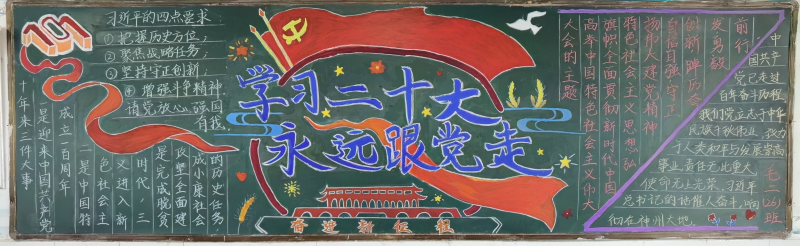 习近平的四点要求:
① 把握历史方位,
② 聚焦战略任务,
③ 坚持守正创新,
④ 增强斗争精神。
请党放心,强国
有我。
十年来三件大事
一是迎来中国共产党
成立一百周年
二是中国特
色社会主
义进入新
时代,三
是完成脱贫
攻坚全面建
成小康社会
的历史任务
学习二十大
永远跟党走
奋进新征程
人会的主题
高举中国特色社会主义伟大
旗帜全面贯彻新时代中国
特色社会主义思想弘
扬伟大建党精神
自信自强守正
创新踔厉奋
发勇毅
前行
中
国共产
党已走过
百年奋斗历程
我们党立志于中华
民族千秋伟业,致力
于人类和平与发展崇高
事业,责任无比重大
使命无上光荣。习近平
总书记的话催人奋斗,响
彻在神州大地。
七二
(26)
班